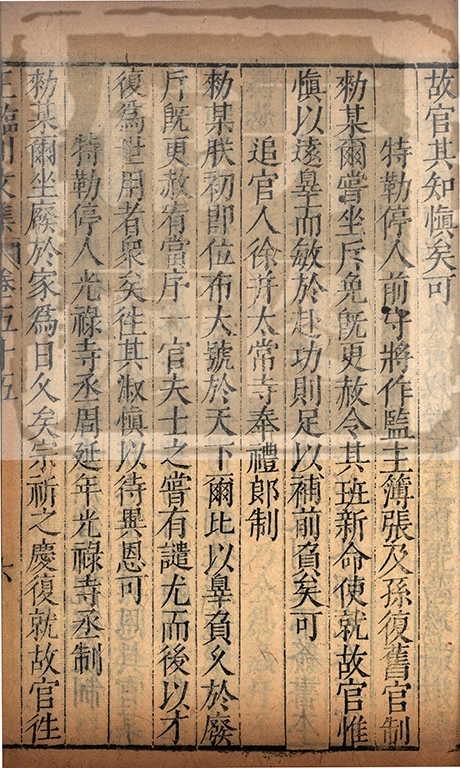 故官其知慎矣可
特勒停人前守將作監主簿張及孫復舊官制
勑某爾嘗坐斥免旣更赦令其班新命使就故官惟
愼以遠辠而敏於赴功則足以補前負矣可
追官人徐并太常寺奉禮郞制
勑某朕初卽位布大號於天下爾比以辠負久於廢
斥旣更赦宥當序一官夫士之嘗有譴尤而後以才
復爲世用者衆矣往其淑愼以待異恩可
特勒停人光祿寺丞周延年光祿寺丞制
勑某爾坐廢於家爲日久矣宗祈之慶復就故官往
王臨川文集 卷五十五 六